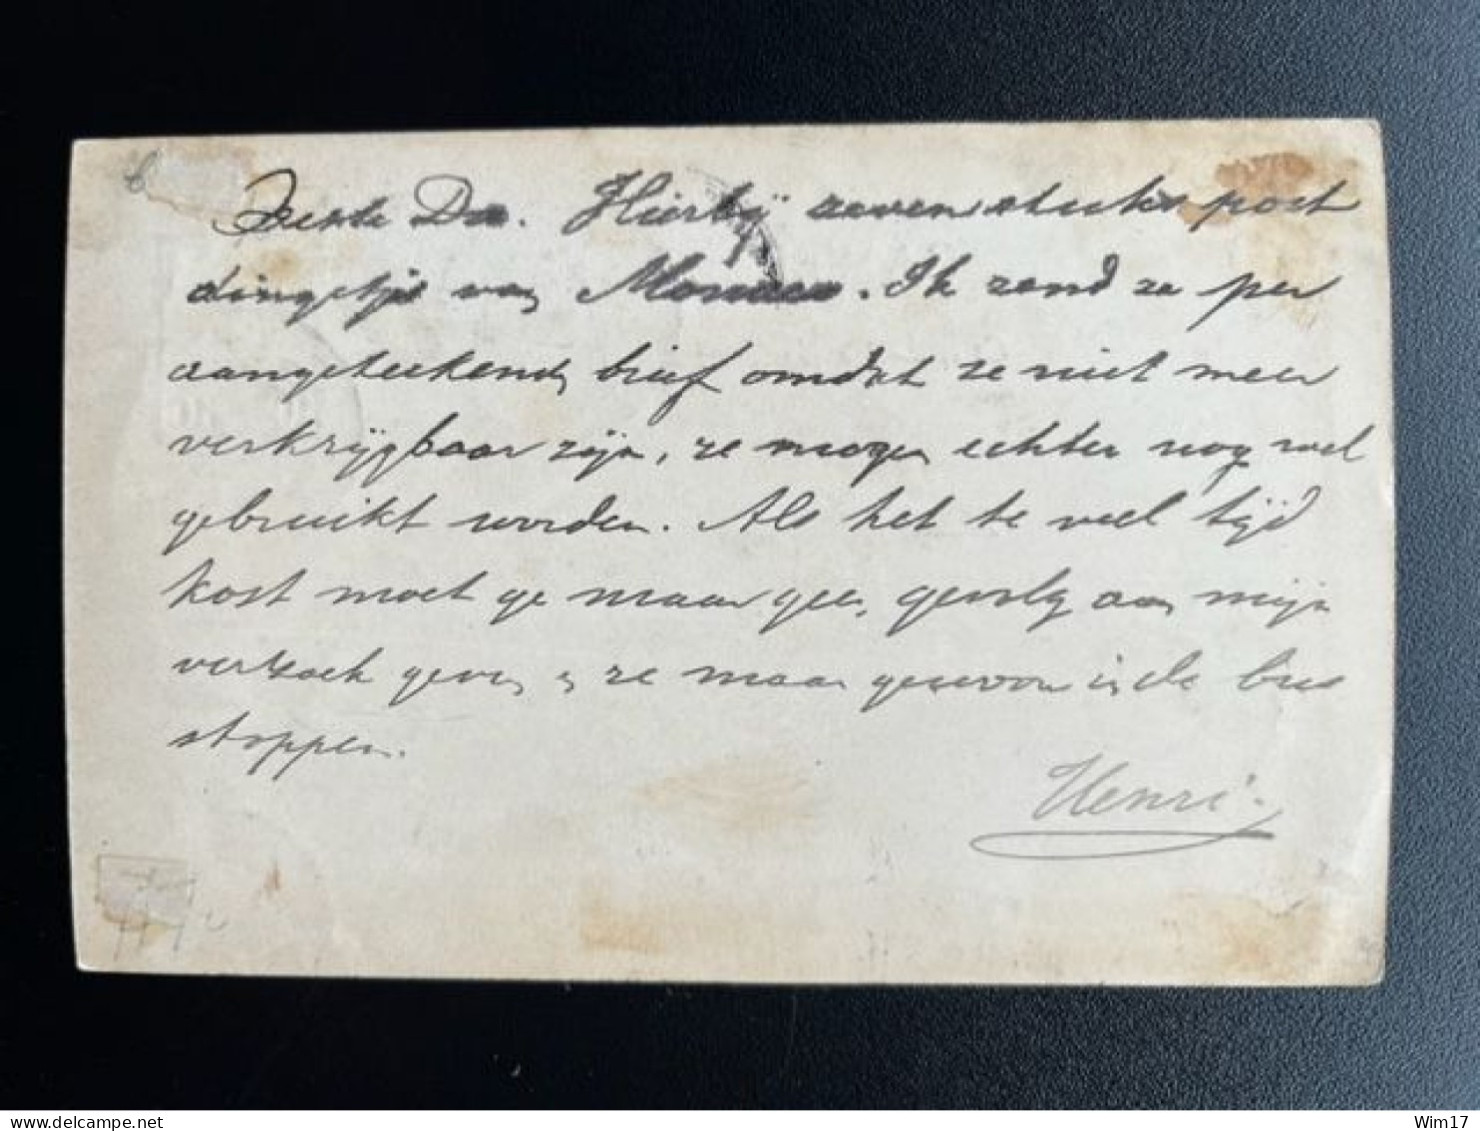 Beste Da. Hierbij zeven stuks post
dingetjes van Monaco. Ik zend ze per
aangeteekenden brief omdat ze niet meer
verkrijgbaar zijn, ze mogen echter nog wel
gebruikt worden. Als het te veel tijd
kost moet ge maar geen gevolg aan mijn
verzoek geven en ze maar gewoon in de bus
stoppen.
Henri.
delcampe.net
Wim17